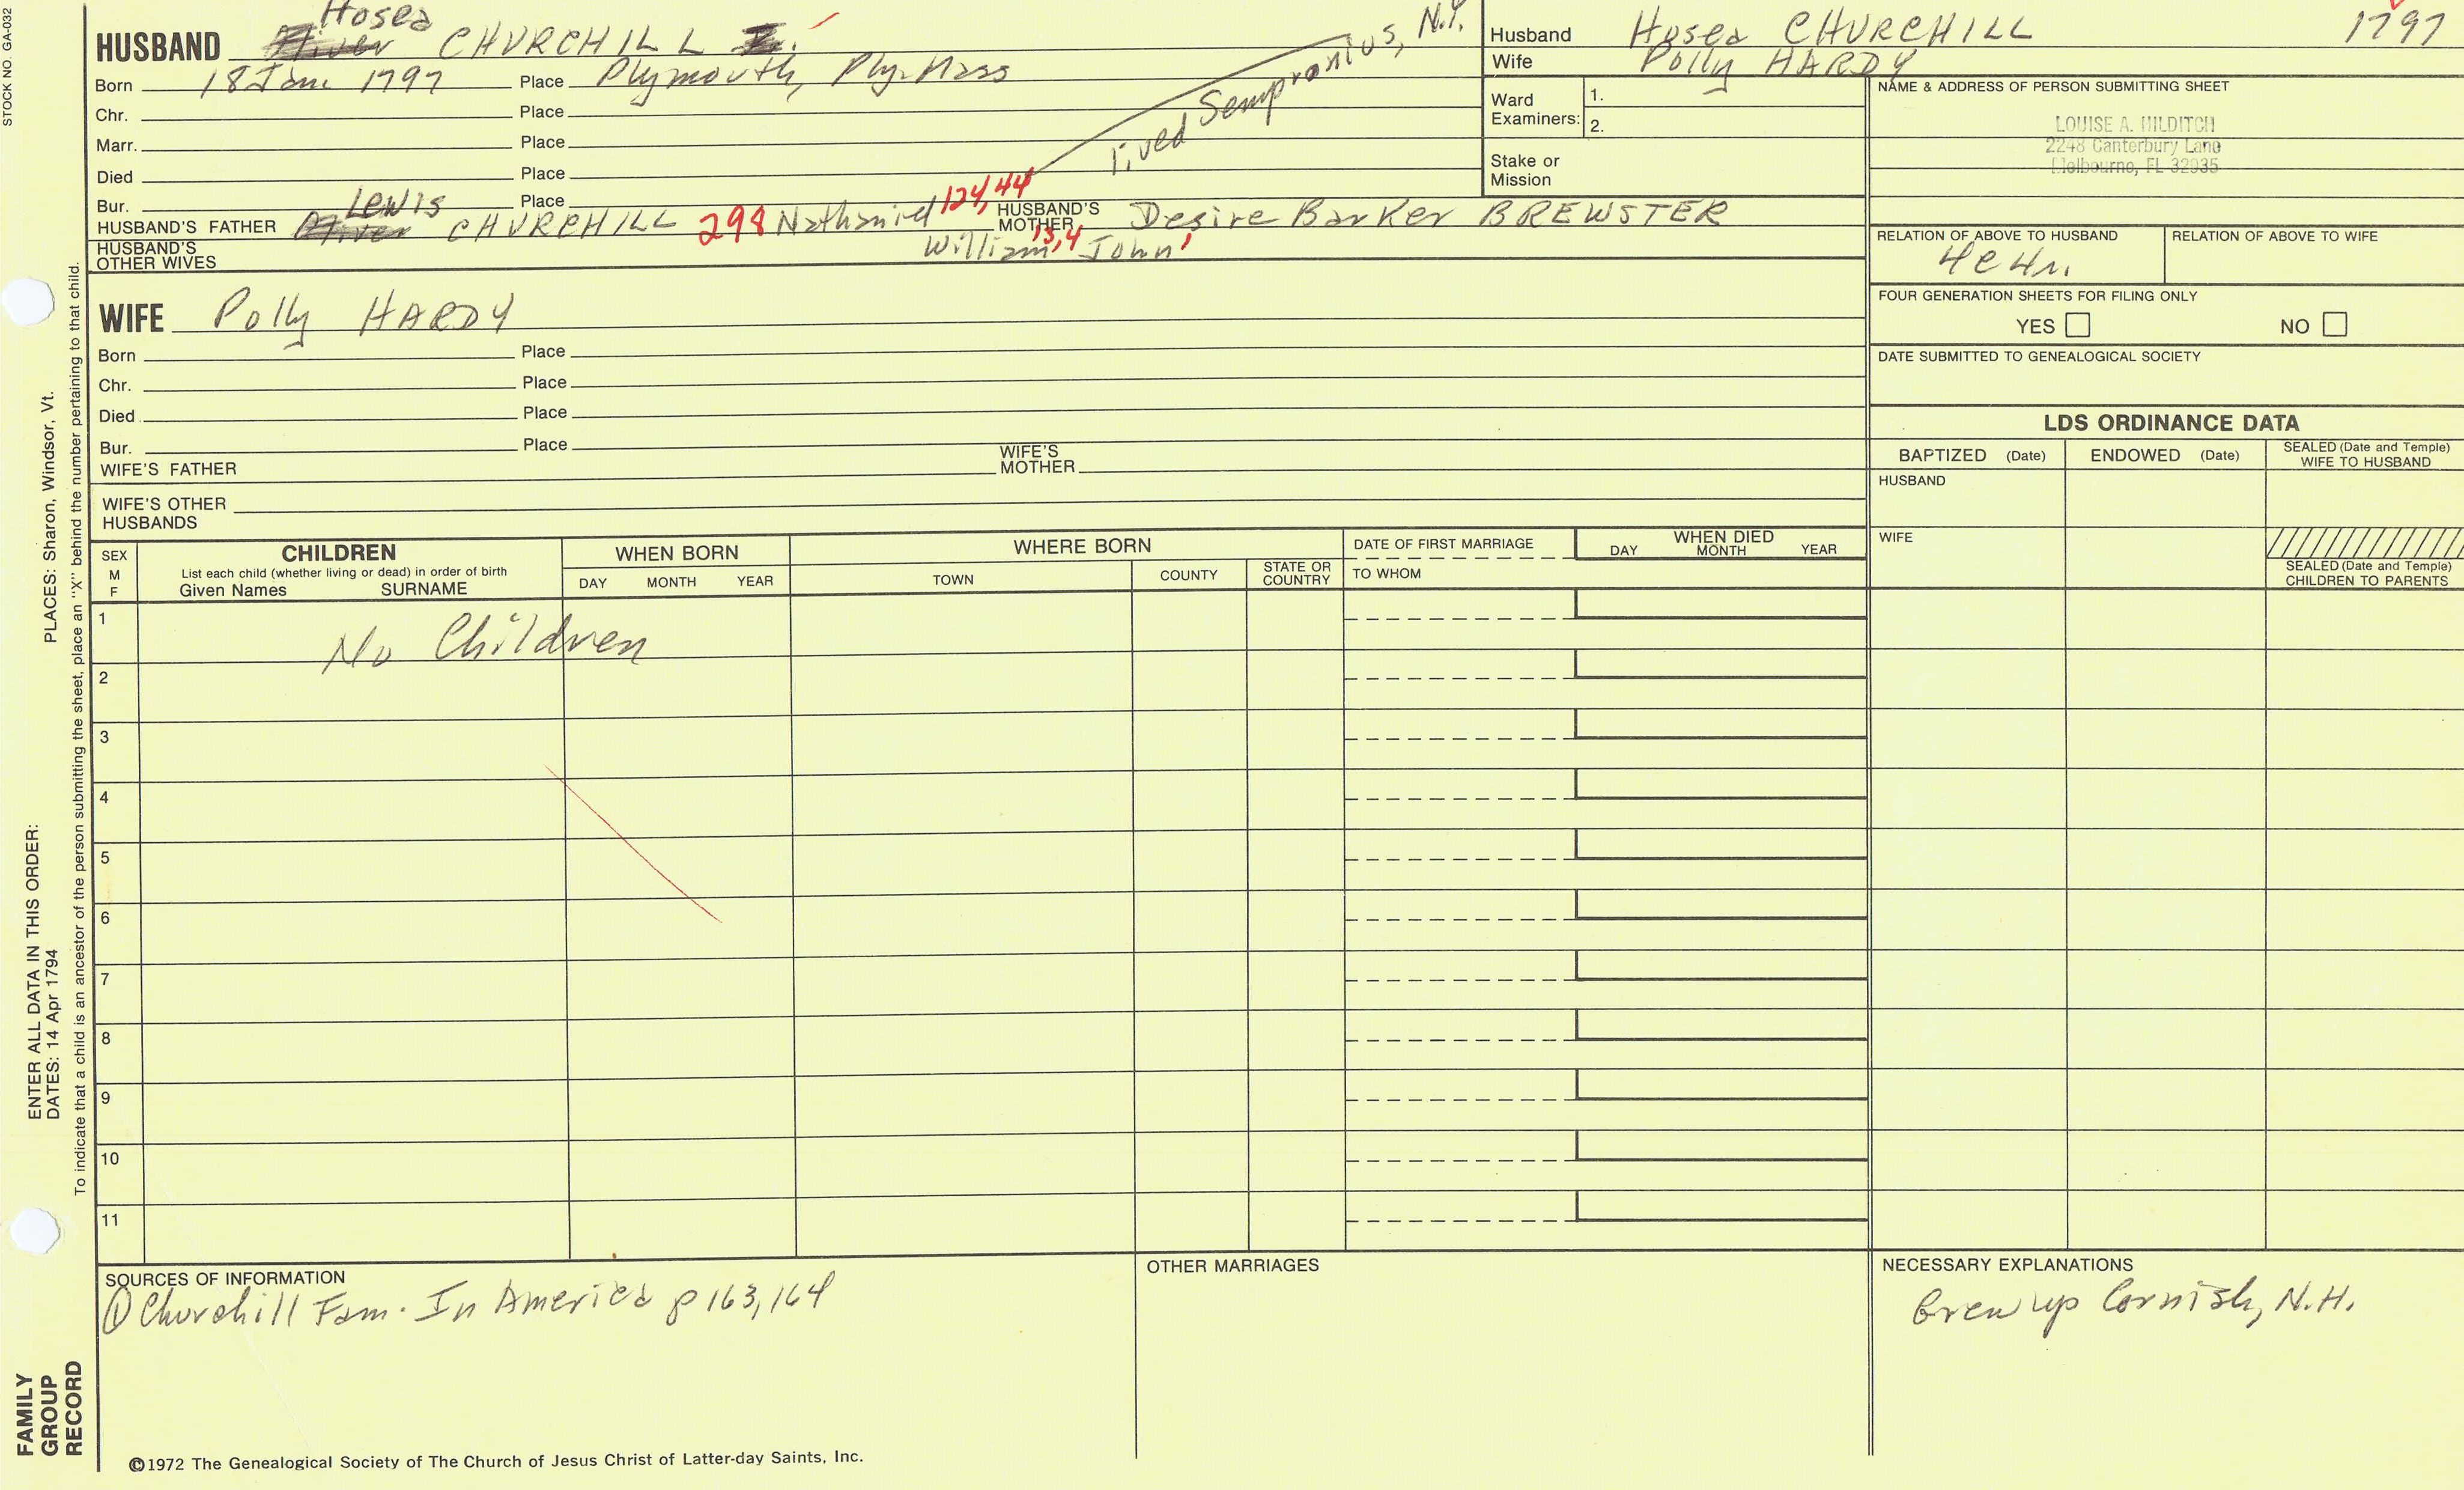 STOCK NO. GA-032
Hosea
HUSBAND CHURCHILL
Born 18 Jan. 1797 Place Plymouth, Ply-Mass
Chr. Place
Marr. Place
Died Place
Bur. Place
lived Sempronius, N.Y.
Lewis
HUSBAND'S FATHER CHURCHILL 298 Nathaniel 124, 44 HUSBAND'S MOTHER Desire Barker BREWSTER
William 13,4 John 1
HUSBAND'S OTHER WIVES
WIFE Polly HARDY
Born Place
Chr. Place
Died Place
Bur. Place
WIFE'S FATHER WIFE'S MOTHER
WIFE'S OTHER HUSBANDS
Husband Hosea CHURCHILL 1797
Wife Polly HARDY
Ward Examiners: 1.
2.
Stake or Mission
NAME & ADDRESS OF PERSON SUBMITTING SHEET
LOUISE A. HILDITCH
2248 Canterbury Lane
Melbourne, FL 32935
RELATION OF ABOVE TO HUSBAND RELATION OF ABOVE TO WIFE
4c4r.
FOUR GENERATION SHEETS FOR FILING ONLY
YES NO
DATE SUBMITTED TO GENEALOGICAL SOCIETY
LDS ORDINANCE DATA
BAPTIZED (Date) ENDOWED (Date) SEALED (Date and Temple) WIFE TO HUSBAND
HUSBAND
WIFE
SEALED (Date and Temple) CHILDREN TO PARENTS
SEX M F
CHILDREN
List each child (whether living or dead) in order of birth
Given Names SURNAME
WHEN BORN
DAY MONTH YEAR
WHERE BORN
TOWN COUNTY STATE OR COUNTRY
DATE OF FIRST MARRIAGE
TO WHOM
WHEN DIED
DAY MONTH YEAR
1 No Children
2
3
4
5
6
7
8
9
10
11
SOURCES OF INFORMATION
① Churchill Fam. In America p 163,164
OTHER MARRIAGES
NECESSARY EXPLANATIONS
Grew up Cornish, N.H.
©1972 The Genealogical Society of The Church of Jesus Christ of Latter-day Saints, Inc.
FAMILY GROUP RECORD
ENTER ALL DATA IN THIS ORDER:
DATES: 14 Apr 1794 PLACES: Sharon, Windsor, Vt.
To indicate that a child is an ancestor of the person submitting the sheet, place an "X" behind the number pertaining to that child.